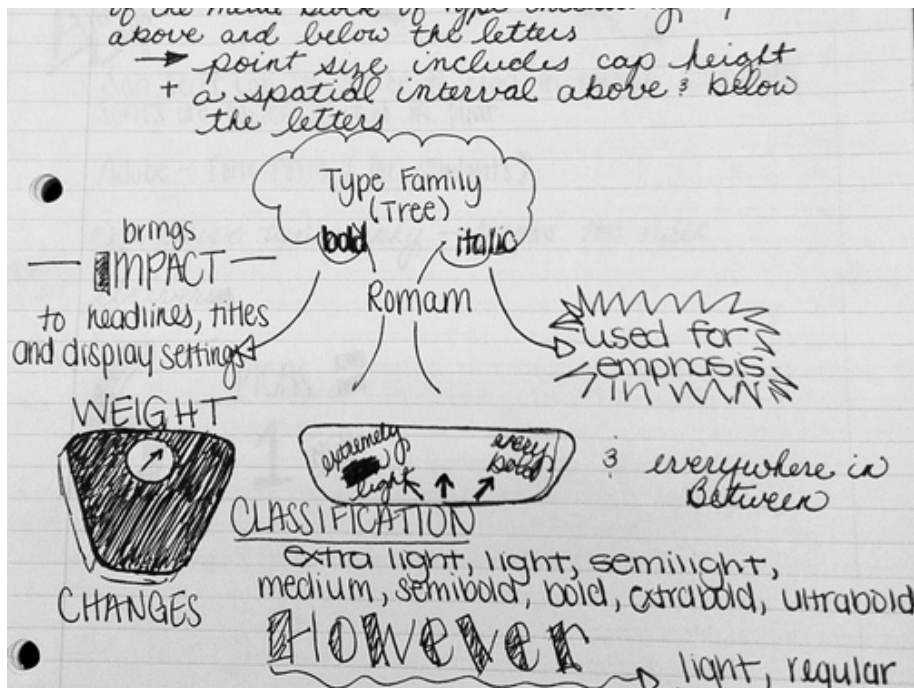 above and below the letters
→ point size includes cap height
+ a spatial interval above & below
the letters
Type Family
(Tree)
bold italic
Romam
brings
IMPACT
to headlines, titles
and display settings
used for
emphasis
WEIGHT
CHANGES
extremely
light
very
bold
& everywhere in
Between
CLASSIFICATION
extra light, light, semilight,
medium, semibold, bold, extrabold, ultrabold
However
light, regular